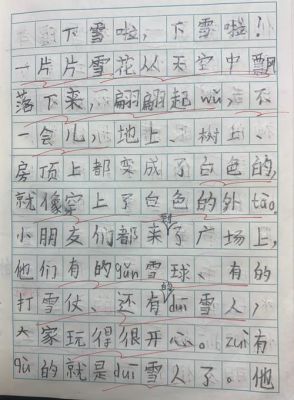 下雪啦，下雪啦！
一片片雪花从天空中飘
落下来，翩翩起wǔ，不
一会儿，地上、树上、
房顶上都变成了白色的，
就像穿上了白色的外tào。
小朋友们都来到了广场上，
他们有的gǔn雪球、有的
打雪仗、还有的duī雪人，
大家玩得很开心。zuì有
qù的就是duī雪人了。他